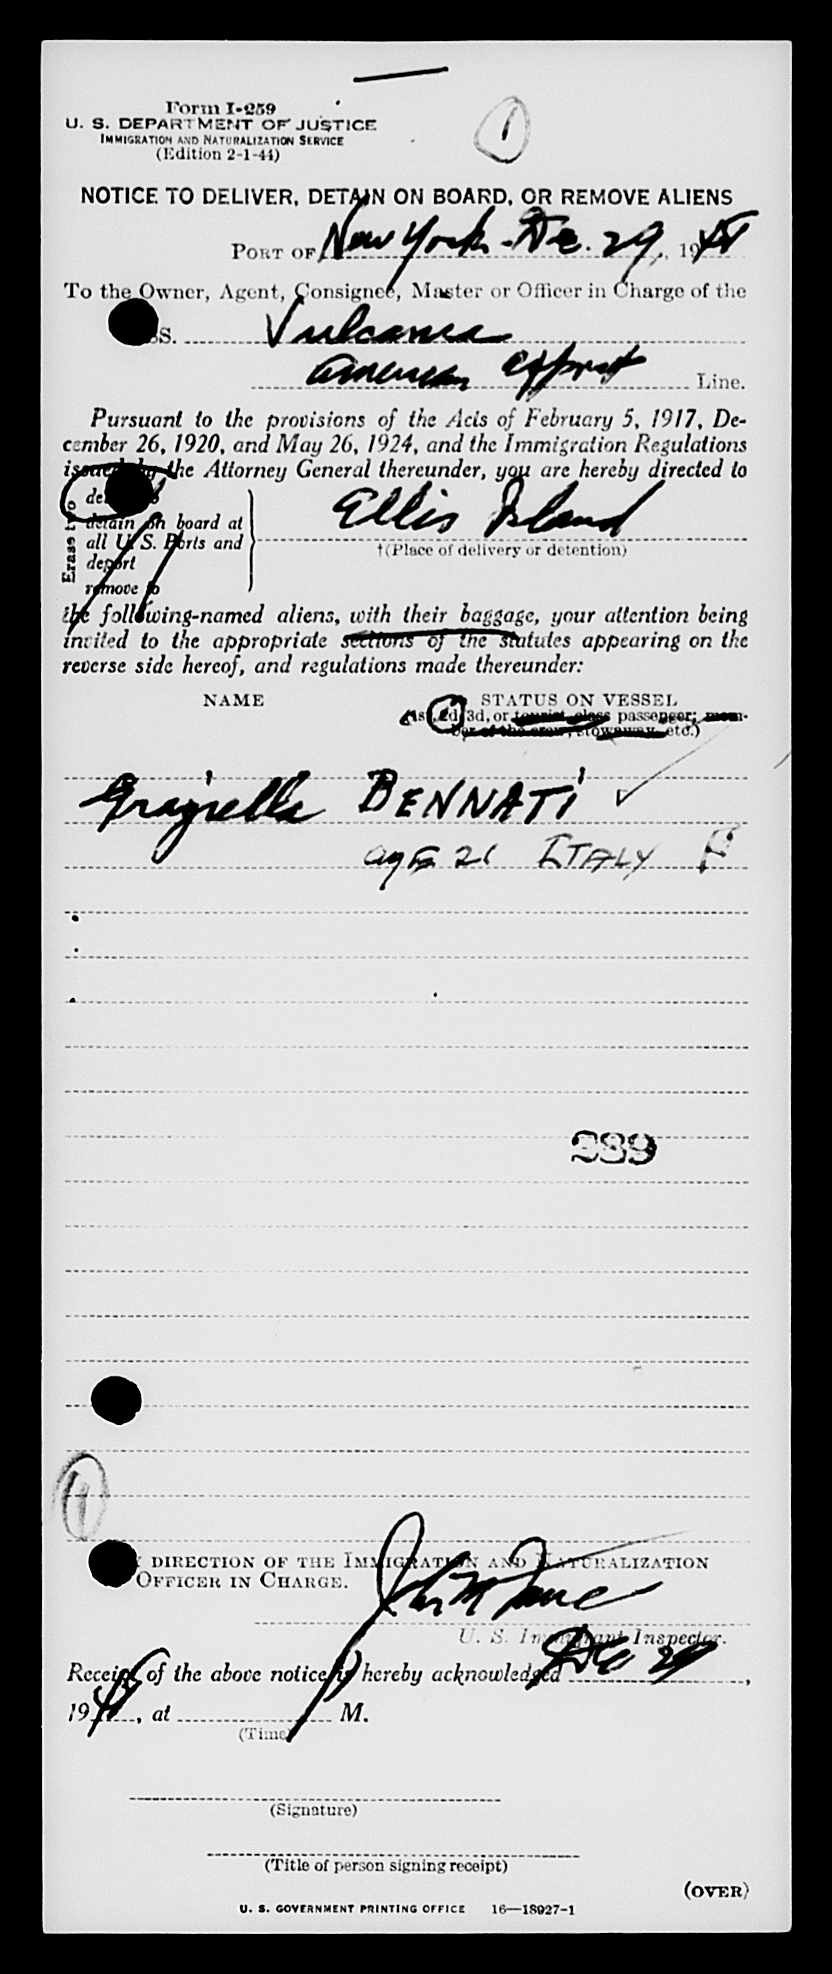 Form I-259
U. S. DEPARTMENT OF JUSTICE
IMMIGRATION AND NATURALIZATION SERVICE
(Edition 2-1-44)
1
NOTICE TO DELIVER, DETAIN ON BOARD, OR REMOVE ALIENS
PORT OF New York - Dec. 29, 19
To the Owner, Agent, Consignee, Master or Officer in Charge of the
SS. Vulcania
American Export Line.
Pursuant to the provisions of the Acts of February 5, 1917, De-
cember 26, 1920, and May 26, 1924, and the Immigration Regulations
issued by the Attorney General thereunder, you are hereby directed to
Erase two
detain on board at
all U. S. Ports and
deport
remove to
Ellis Island
†(Place of delivery or detention)
the following-named aliens, with their baggage, your attention being
invited to the appropriate sections of the statutes appearing on the
reverse side hereof, and regulations made thereunder:
NAME STATUS ON VESSEL
(1st, 2d, 3d, or tourist class passenger; mem-
ber of the crew, stowaway, etc.)
Graziella BENNATI
age 21 ITALY F
239
1
DIRECTION OF THE IMMIGRATION AND NATURALIZATION
OFFICER IN CHARGE.
U. S. Immigrant Inspector.
Receipt of the above notice is hereby acknowledged Dec 29,
19, at M.
(Time)
(Signature)
(Title of person signing receipt)
(OVER)
U. S. GOVERNMENT PRINTING OFFICE 16—18927-1